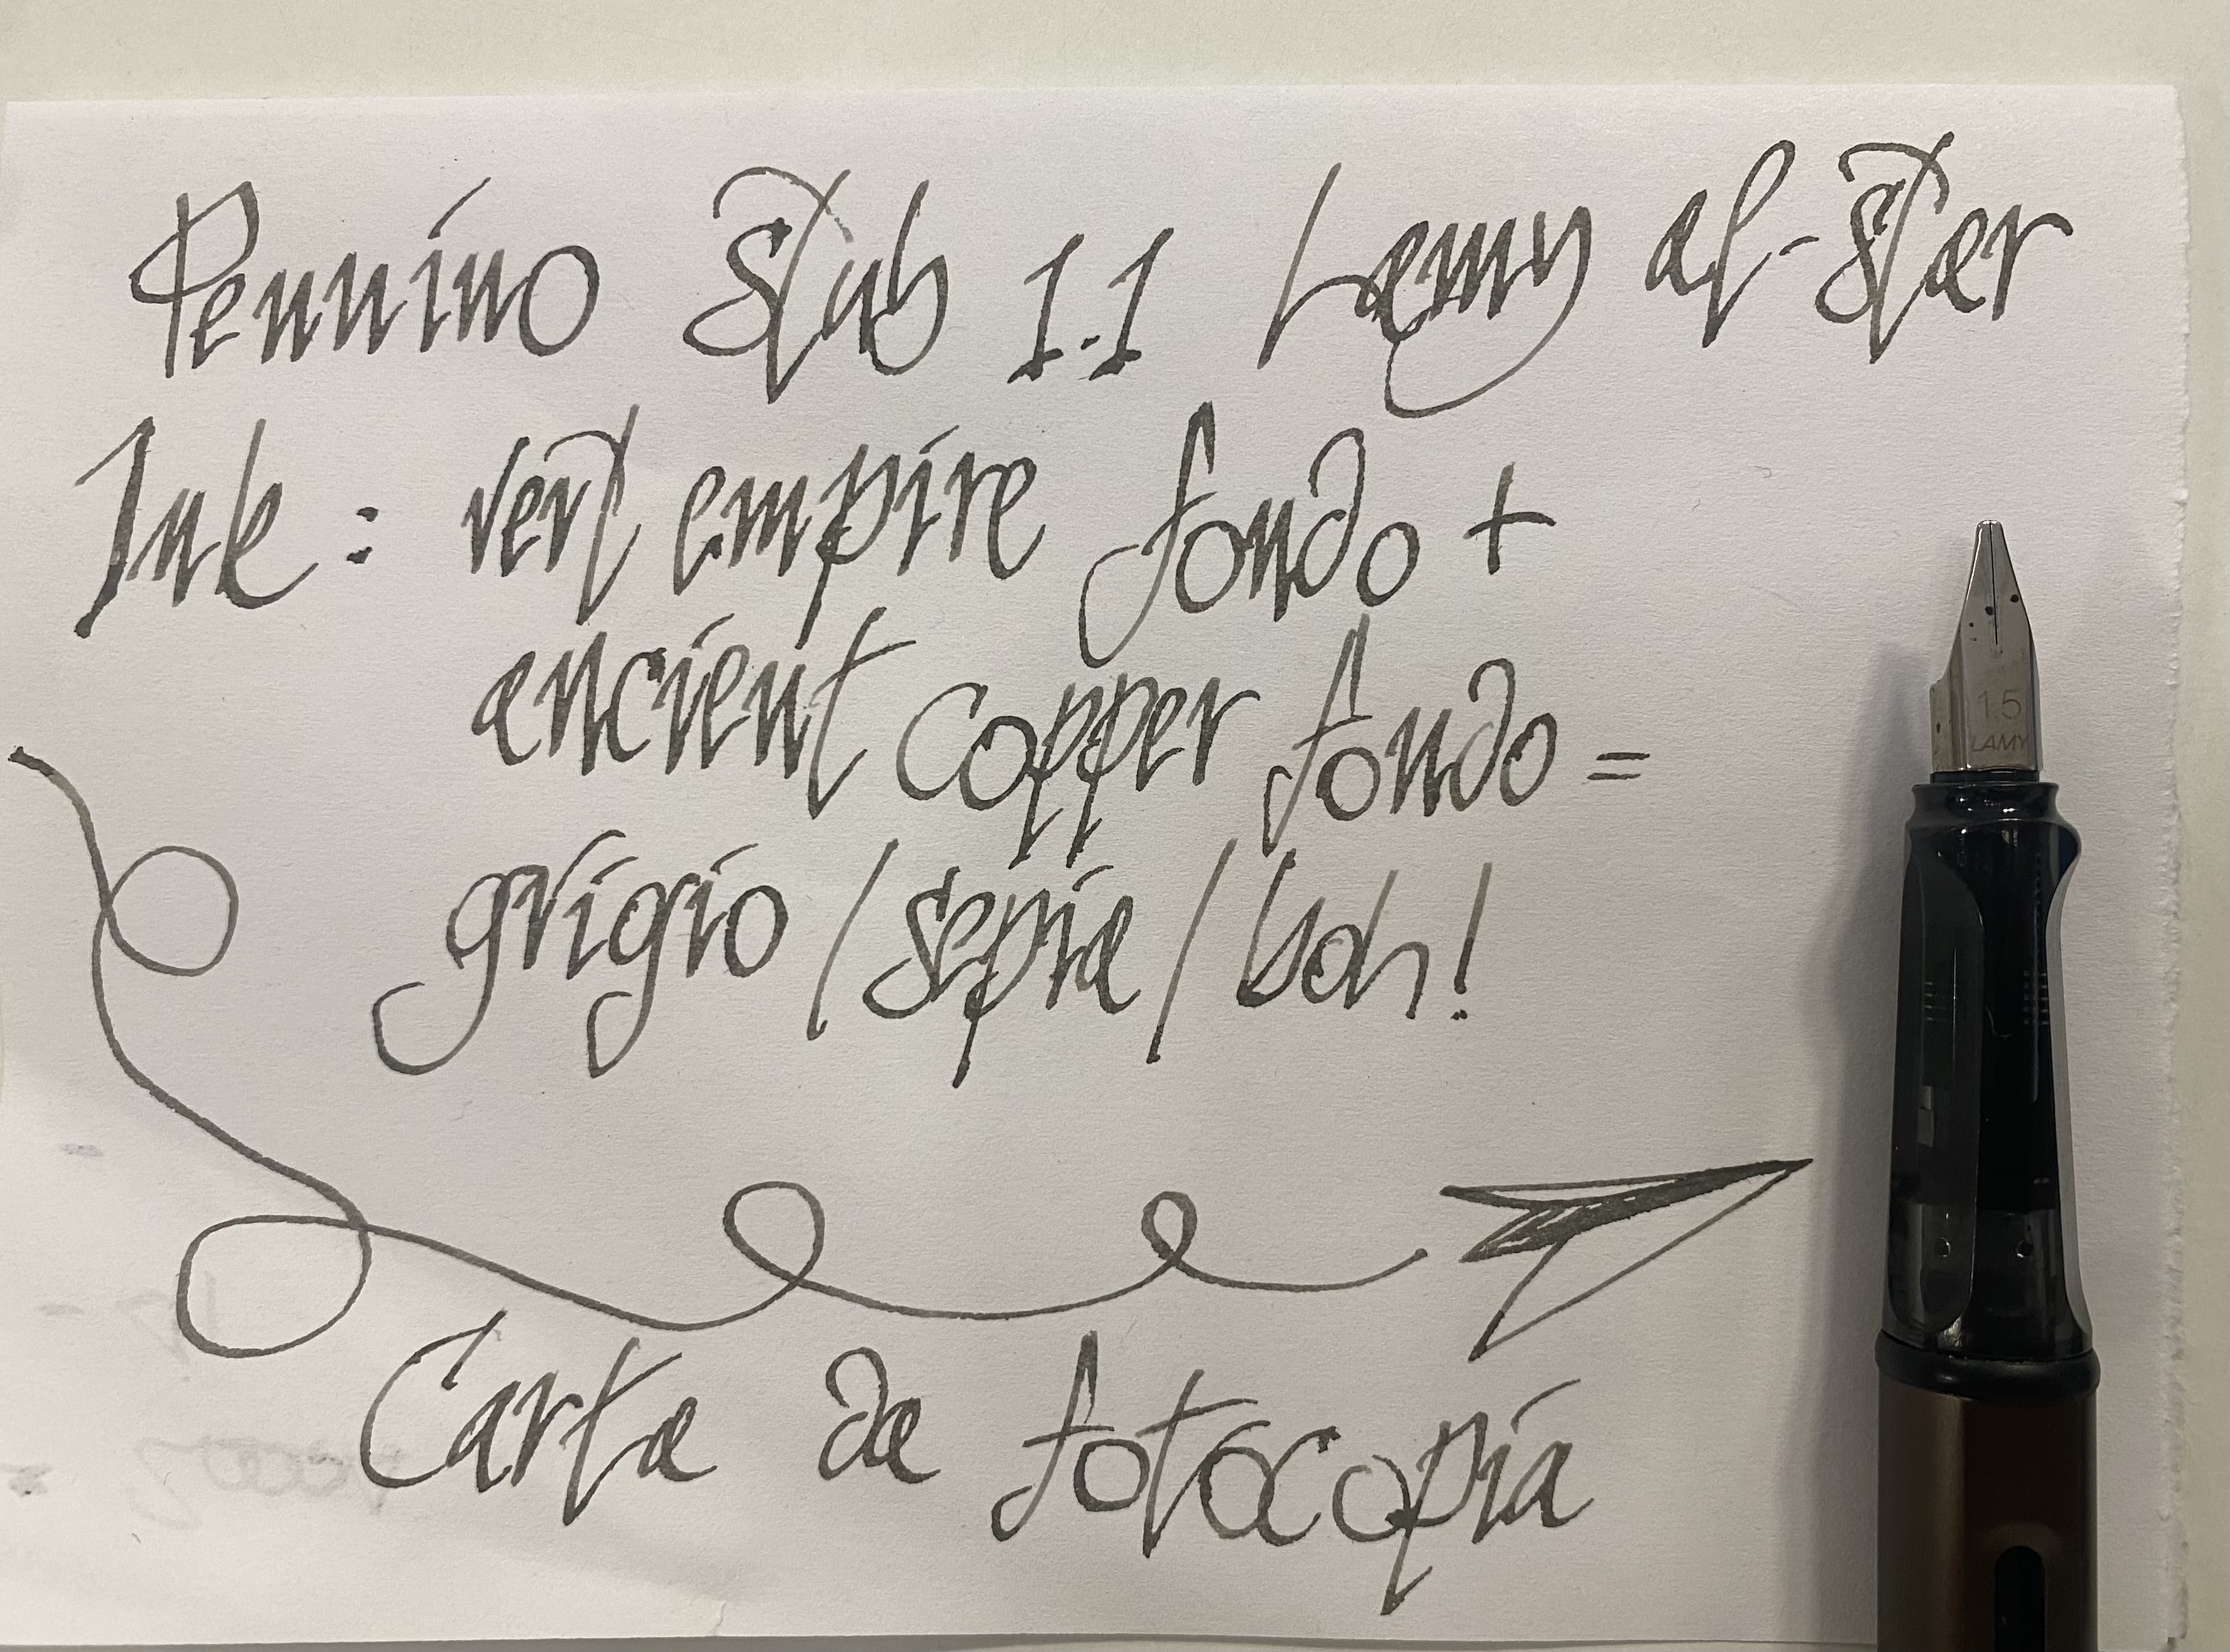 Pennino Stub 1.1 Lamy al-Star
Ink: vert empire fondo +
ancient copper fondo =
grigio / sepia / boh!
Carta da fotocopia
1.5
LAMY